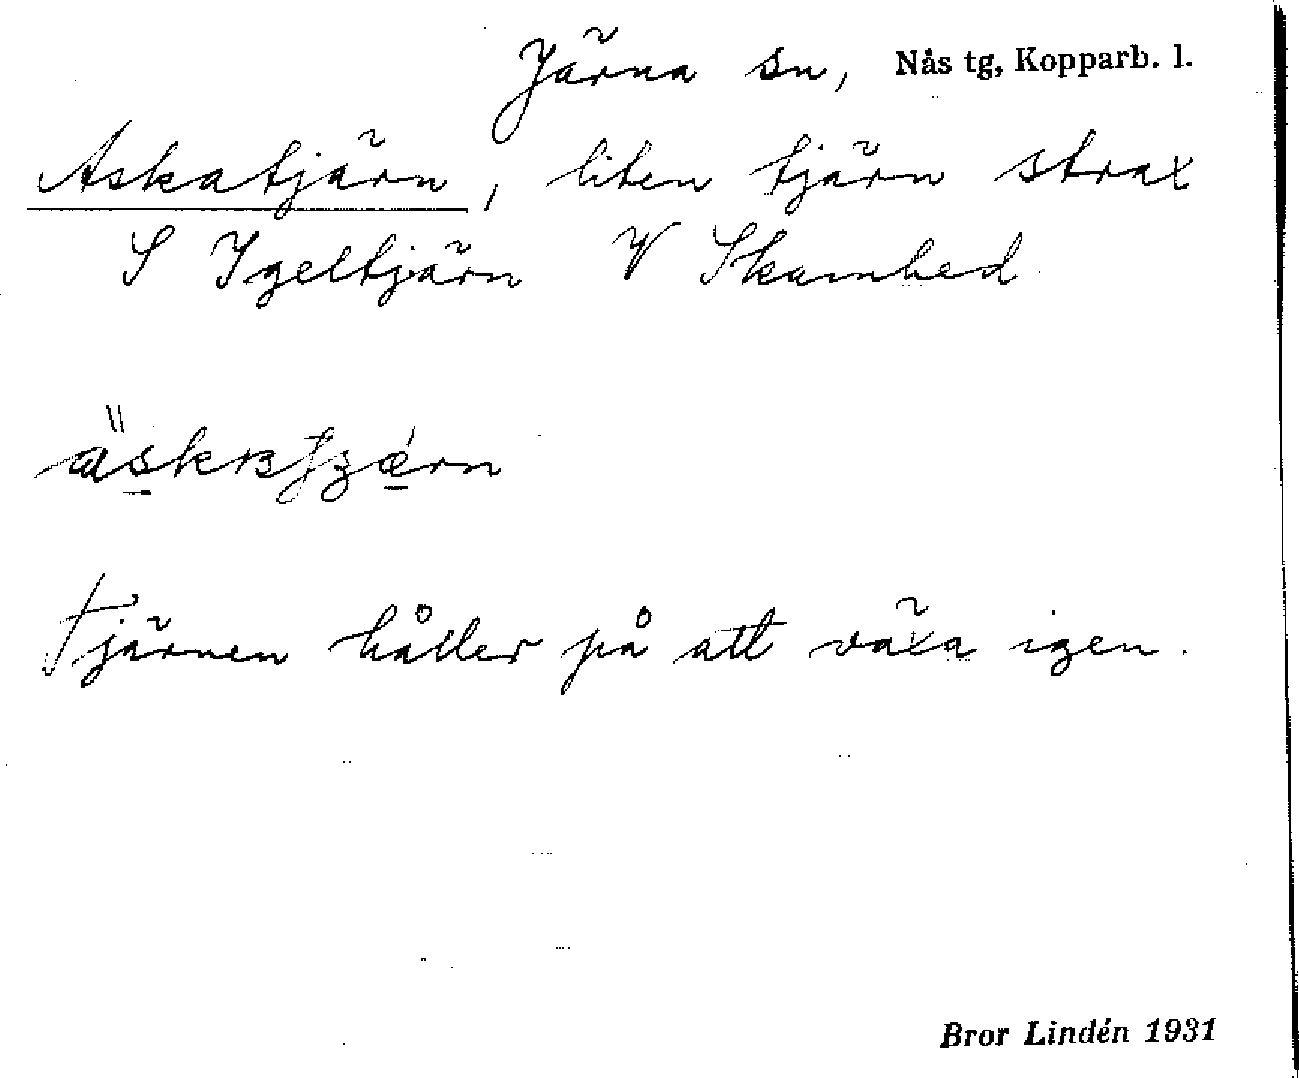 Järna sn, Nås tg, Kopparb. l.
Askatjärn, liten tjärn strax
S Igeltjärn V Skamhed
Tjärnen håller på att växa igen.
Bror Lindén 1931